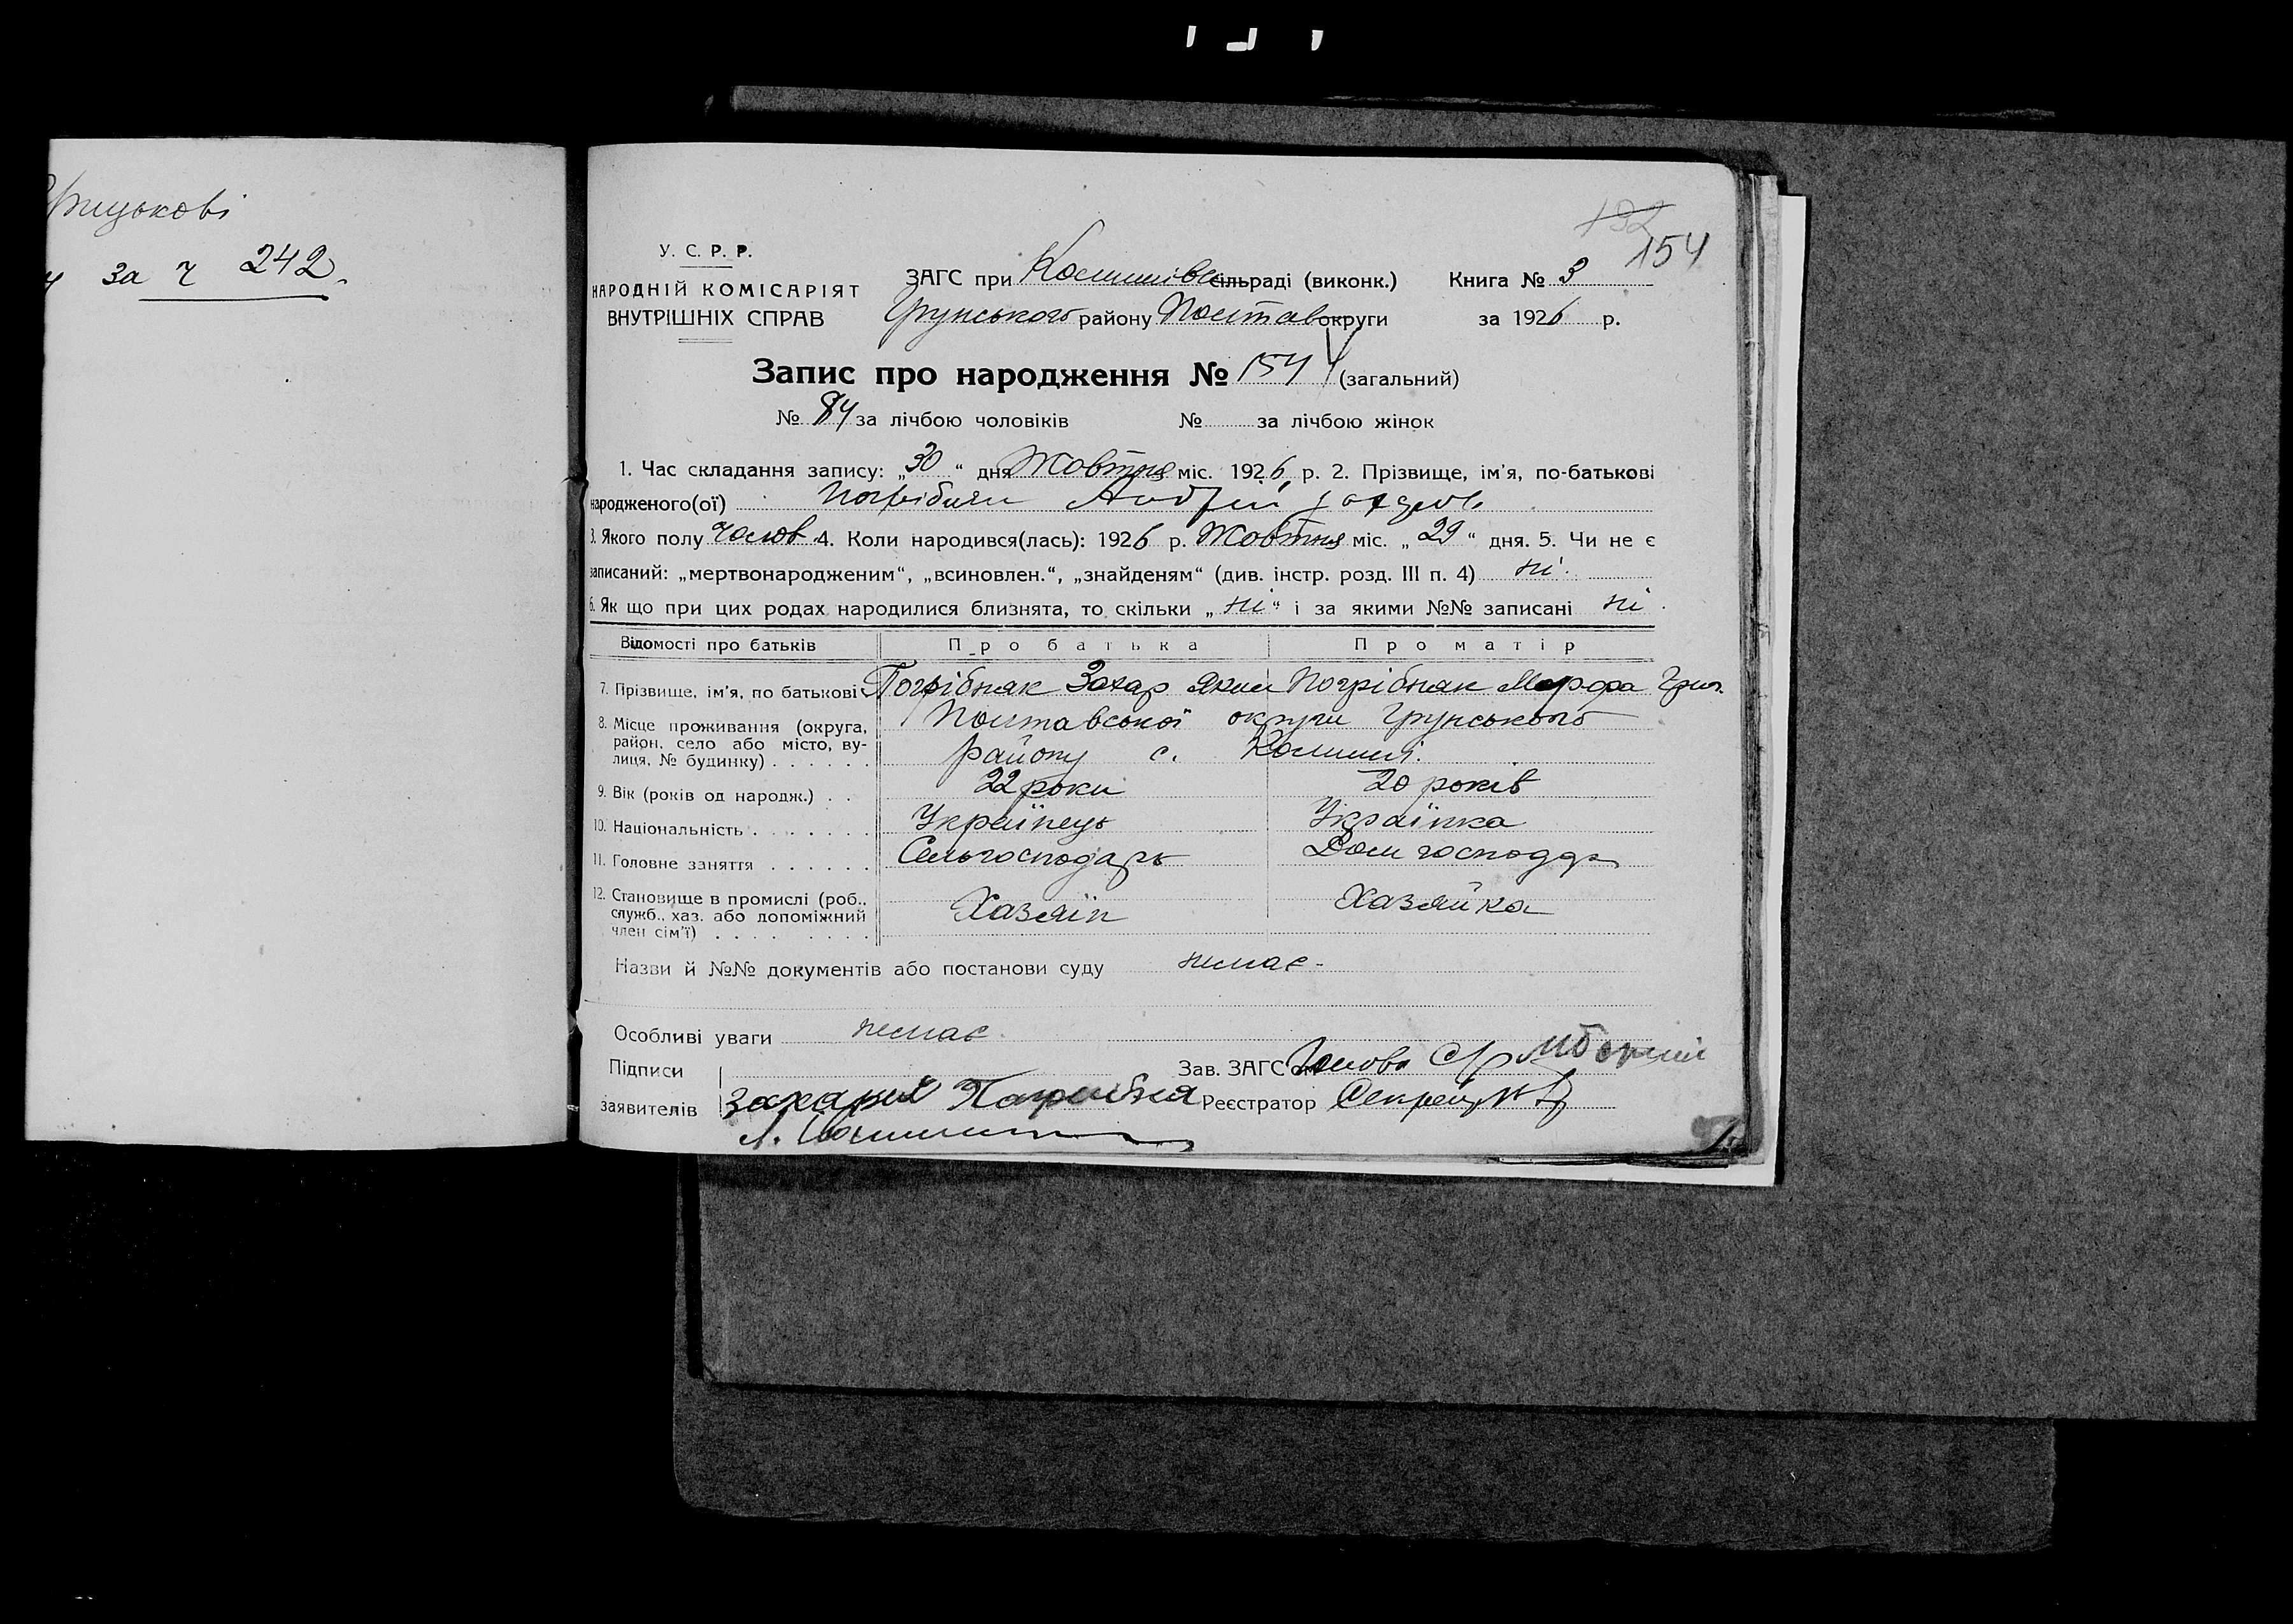 за ч 242.
132
154
У. С. Р. Р.
НАРОДНІЙ КОМІСАРІЯТ
ВНУТРІШНІХ СПРАВ
ЗАГС при сільраді (виконк.)
Грунського району Полтав округи
Книга № 3
за 1926 р.
Запис про народження № 154 (загальний)
№ 84 за лічбою чоловіків № за лічбою жінок
1. Час складання запису: „30“ дня Жовтня міс. 1926 р. 2. Прізвище, ім'я, по-батькові
народженого(ої) Погрібняк Андрій
3. Якого полу чолов. 4. Коли народився(лась): 1926 р. Жовтня міс. „29“ дня. 5. Чи не є
записаний: „мертвонародженим“, „всиновлен.“, „знайденям“ (див. інстр. розд. III п. 4) ні.
6. Як що при цих родах народилися близнята, то скільки „ні“ і за якими №№ записані ні.
Відомості про батьків Про батька Про матір
7. Прізвище, ім'я, по батькові Погрібняк Захар Яким Погрібняк Марфа Григ.
8. Місце проживання (округа, район, село або місто, вулиця, № будинку) . . . . . .
Полтавської округи Грунського
району с.
9. Вік (років од народж.) . . 22 роки 20 років
10. Національність . . . . . . . Українець Українка
11. Головне заняття . . . . . . Сельгосподарь Дом господар
12. Становище в промислі (роб., служб., хаз. або допоміжний член сім'ї) . . . . . . . .
Хазяїн Хазяйка
Назви й №№ документів або постанови суду немає -
Особливі уваги немає
Підписи
заявителів
Зав. ЗАГС'ом Голова
Захарий Реєстратор Секрет